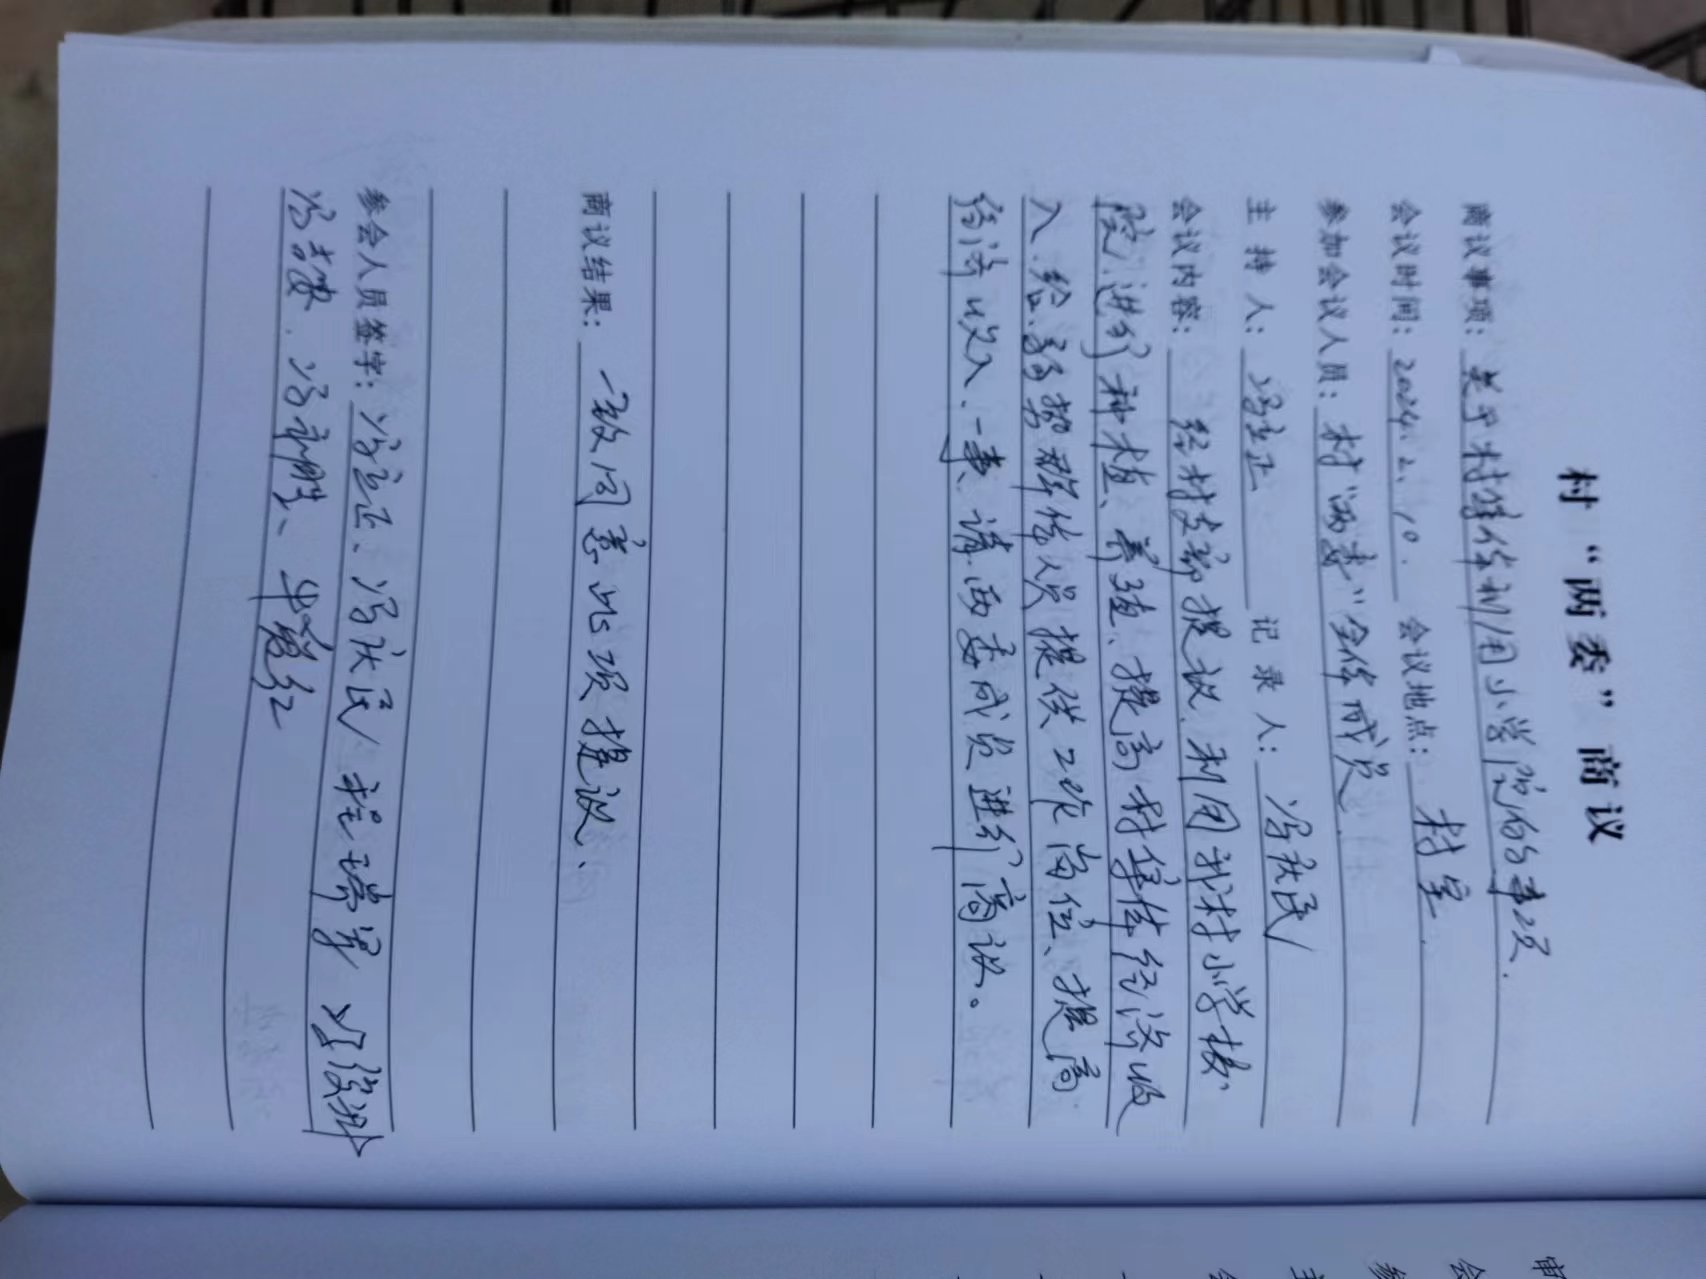 村“两委”商议
商议事项：关于村集体利用小学院的事项.
会议时间：2024.2.10. 会议地点：村室.
参加会议人员：村“两委”全体成员.
主 持 人：冯立正 记 录 人：冯秋民
会议内容：经村支部提议.利用我村小学校
院.进行种植、养殖、提高村集体经济收
入.给.弱势群体人员提供工作岗位、提高
经济收入.一事、请.两委成员进行商议。
商议结果：一致同意此项提议、
参会人员签字：冯立正、冯秋民 程瑞军